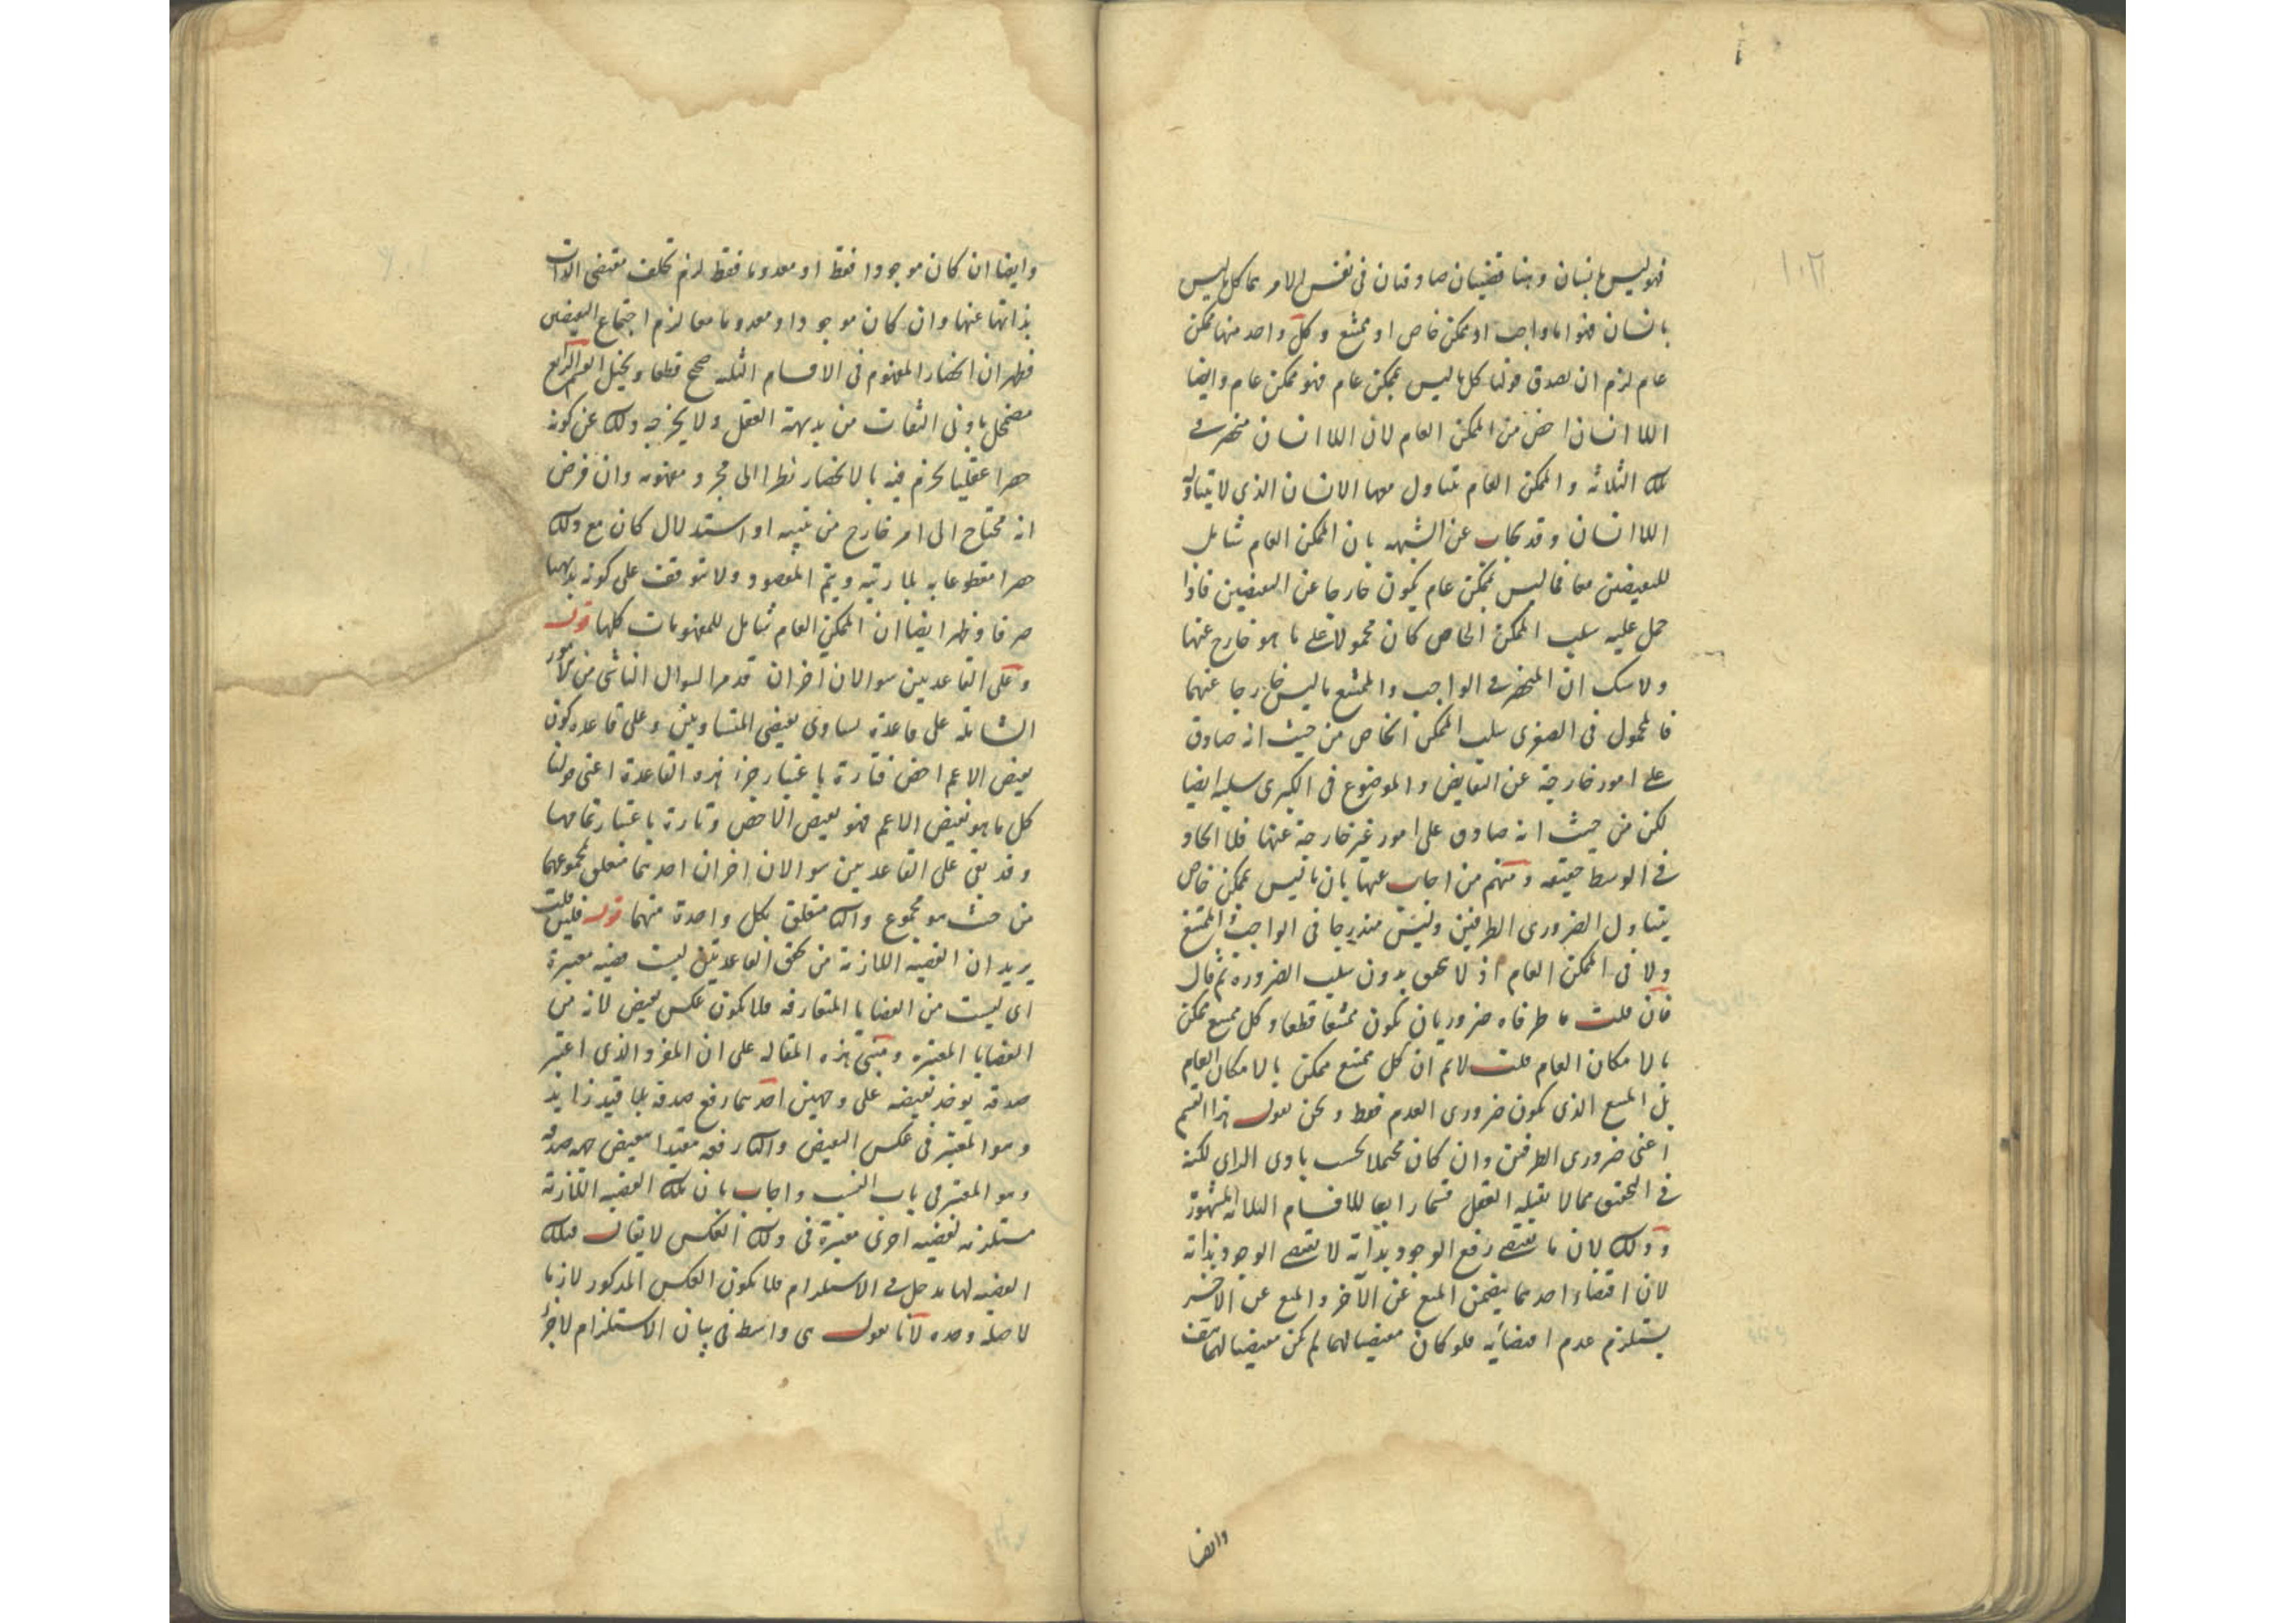 فهو ليس بانسان وهنا قضيتان صادقتان في نفس الامر هما كل ما ليس
بانسان فهو اما واجب او ممكن خاص او ممتنع وكل واحد منها ممكن
عام لزم ان يصدق قولنا كل ما ليس بممكن عام فهو ممكن عام وايضا
اللاانسان اخص من الممكن العام لان اللاانسان منحصر في
تلك الثلاثة والممكن العام يتناول معها الانسان الذي لا يتناوله
اللاانسان وقد يجاب عن الشبهه بان الممكن العام شامل
للنقيضين معا فما ليس بممكن عام يكون خارجا عن النقيضين فاذا
حمل عليه سلب الممكن الخاص كان محمولا على ما هو خارج عنها
ولا شك ان المنحصر في الواجب والممتنع ما ليس خارجا عنهما
فالمحمول في الصغرى سلب الممكن الخاص من حيث انه صادق
على امور خارجة عن النقايض والموضوع في الكبرى سلبه ايضا
لكن من حيث انه صادق على امور غير خارجة عنها فلا اتحاد
في الوسط حقيقه ومنهم من اجاب عنها بان ما ليس بممكن خاص
يتناول الضرورى الطرفين وليس مندرجا في الواجب والممتنع
ولا في الممكن العام اذ لا تحقق بدون سلب الضرورة ثم قال
فان قلت ما طرفاه ضروريان يكون ممتنعا قطعا وكل ممتنع ممكن
بالامكان العام قلت لا نم ان كل ممتنع ممكن بالامكان العام
بل الممتنع الذى يكون ضرورى العدم فقط ونحن نقول هذا القسم
اعنى ضرورى الطرفين وان كان محتملا بحسب بادى الراى لكنه
في التحقيق مما لا يقبله العقل قسما رابعا للاقسام الثلاثة المشهورة
وذلك لان ما يقتضى رفع الوجود بذاته لا يقتضى الوجود بذاته
لان اقتضاء احدهما يتضمن المنع عن الآخر والمنع عن الآخر
يستلزم عدم اقتضائه فلو كان مقتضيا لهما لم يكن مقتضيا لهما هف
وايضا
وايضا ان كان موجودا فقط او معدوما فقط لزم تخلف مقتضى الذات
بذاتها عنها وان كان موجودا ومعدوما معا لزم اجتماع النقيضين
فظهر ان انحصار المفهوم في الاقسام الثلثه صحيح قطعا وتخيل القسم الرابع
مضمحل بادنى التفات من بديهة العقل ولا يخرجه ذلك عن كونه
حصرا عقليا يجزم فيه بالانحصار نظرا الى مجرد مفهومه وان فرض
انه محتاج الى امر خارج من تنبيه او استدلال كان مع ذلك
حصرا مقطوعا به بلا ريبة ويتم المقصود ولا يتوقف على كونه بديهيا
صرفا وظهر ايضا ان الممكن العام شامل للمفهومات كلها قوله
وعلى القاعدتين سوالان آخران قد مر السوال الناشى من الامور
الشاملة على قاعدة تساوى نقيضى المتساويين وعلى قاعدة كون
نقيض الاعم اخص فتارة باعتبار جزء هذه القاعدة اعنى قولنا
كل ما هو نقيض الاعم فهو نقيض الاخص وتارة باعتبار تمامها
وقد بقى على القاعدتين سوالان اخران احدهما متعلق بمجموعهما
من حيث هو مجموع والثانى متعلق بكل واحدة منهما قوله فليس قلت
يريد ان القضيه اللازمة من تحقق القاعدتين ليست قضيه معتبرة
اى ليست من القضايا المتعارفه فلا يكون عكس نقيض لازم من
القضايا المعتبره ومبنى هذه المقاله على ان المفرد الذى اعتبر
صدقه يوخذ نقيضه على وجهين احدهما رفع صدقه بلا قيد زايد
وهو المعتبر في عكس النقيض والثانى رفعه مقيدا بنقيض جهة صدقه
وهو المعتبر في باب النسب واجاب بان تلك القضيه اللازمة
مستلزمه لقضيه اخرى معتبرة في ذلك العكس لا يقال فتلك
القضيه لها مدخل في الاستلزام فلا يكون العكس المذكور لازما
لاصله وحده لانا نقول هى واسطه في بيان الاستلزام لا جزء